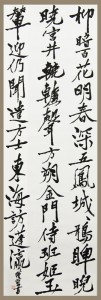 柳暗花明春深五鳳城鴉睥睨
曉宮井轆轤聲方朔金門侍班姬玉
輦迎仍聞遣方士東海訪蓬瀛